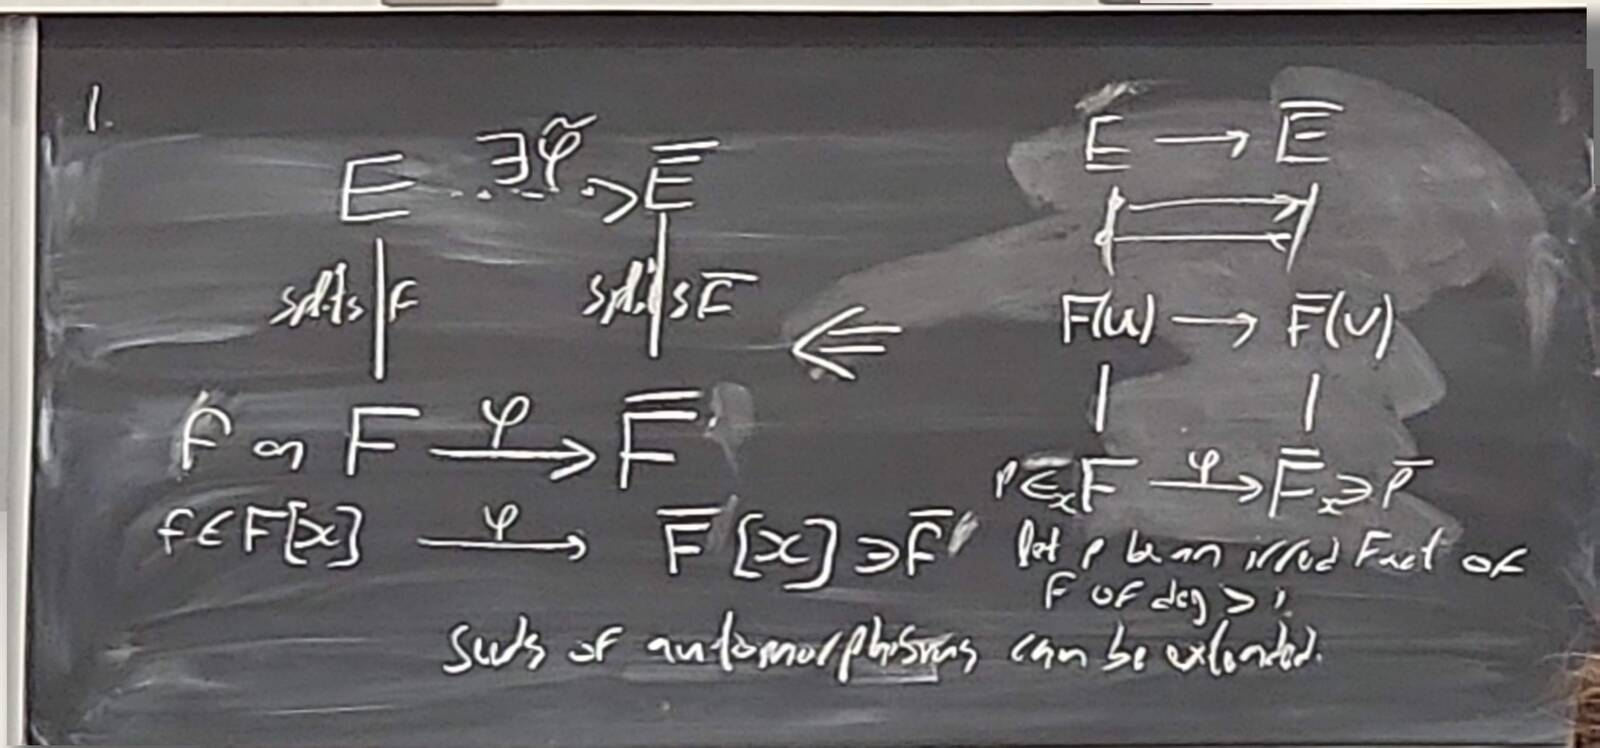 1.
E ∃φ̃ ⇢ E̅
splits | F splits F̅
f on F —φ→ F̅
f ∈ F[x] —φ→ F̅[x] ∋ f̅
⇐
E → E̅
F(u) → F̅(v)
p ∈ₓ F —φ→ F̅ₓ ∋ p̅
let p be an irred Fact of
F of deg > 1.
of automorphisms can be extended.